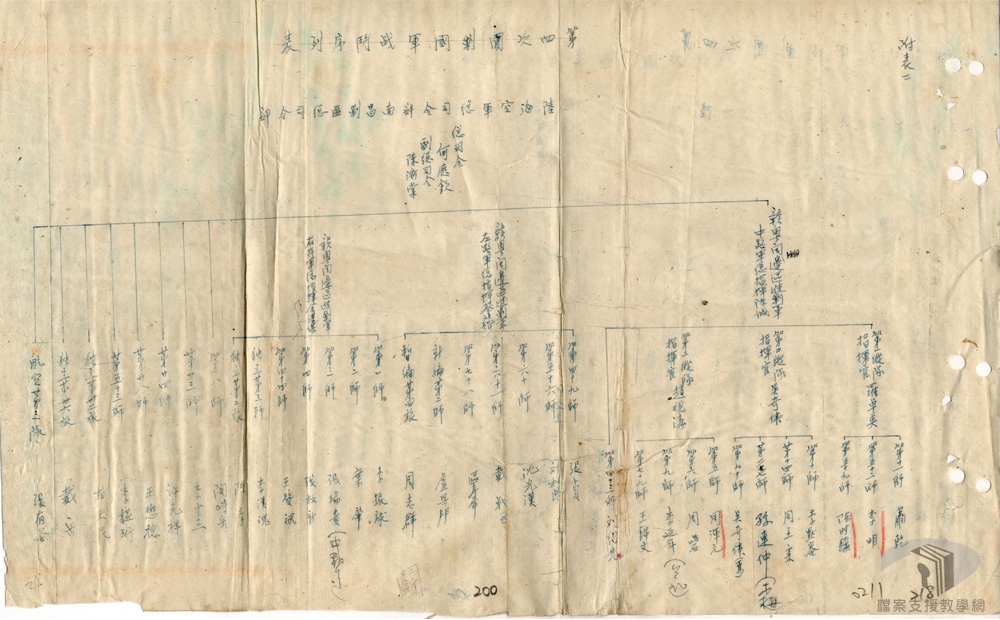 附表二
第四次圍剿國軍战鬥序列表
陸海空軍總司令部南昌剿匪總司令部
總司令
何應欽
副總司令
陳濟棠
贛粵閩邊區進剿軍
中路軍總指揮陳誠
第一縱隊
指揮官 羅卓英
第十一師 蕭乾
第五十二師 李明
第五十九師 陳時驥
第二縱隊
指揮官 吳奇偉
第十師 李默庵
第十四師 周至柔
第二十七師 孫連仲
第九十師 吳奇偉
第三縱隊
指揮官 趙观濤
第五師 周渾元
第六師 周喦
第九師 李延年
第七十九師 王錦文
第四十三師 刘绍先
贛粵閩邊區進剿軍
左路軍總指揮蔡廷鍇
第四十九師 張
第五十六師 刘和鼎
第六十師 沈光漢
第六十一師 戴戟
第七十八師 區壽年
新编第二師 盧興邦
暫编第四旅 周志群
贛粵閩邊區進剿軍
右路軍總指揮
第一師 李振球
第二師 葉肇
第三師 張瑞貴
第四師 張枚新
第四十四師 王贊斌
独立第三師 李漢魂
独立第二旅 陳章
第八師 陶峙岳
第二十三師 李雲杰
第二十四師 許克祥
第二十八師 王懋德
第五十三師 李韞珩
独立第卅二旅 柏天民
独立第卅六旅 戴岳
航空第三隊 張有谷
200
0211
218
檔案支援教學網